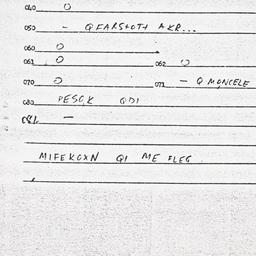 040 O
050 - QFARSLOTH AKR...
060 O
061 O 062 O
070 O 071 - Q MONCELE
080 PESCK QDI
081 -
MIFEKOXN QI ME FLEG